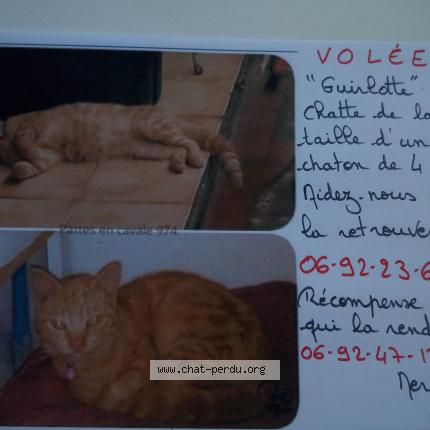 VOLÉE
"Guilotte"
Chatte de la
taille d'un
chaton de 4
Aidez-nous
la retrouver
06-92-23-6
Récompense
qui la rend
06-92-47-1
Mer
Pattes en cavale 974
www.chat-perdu.org